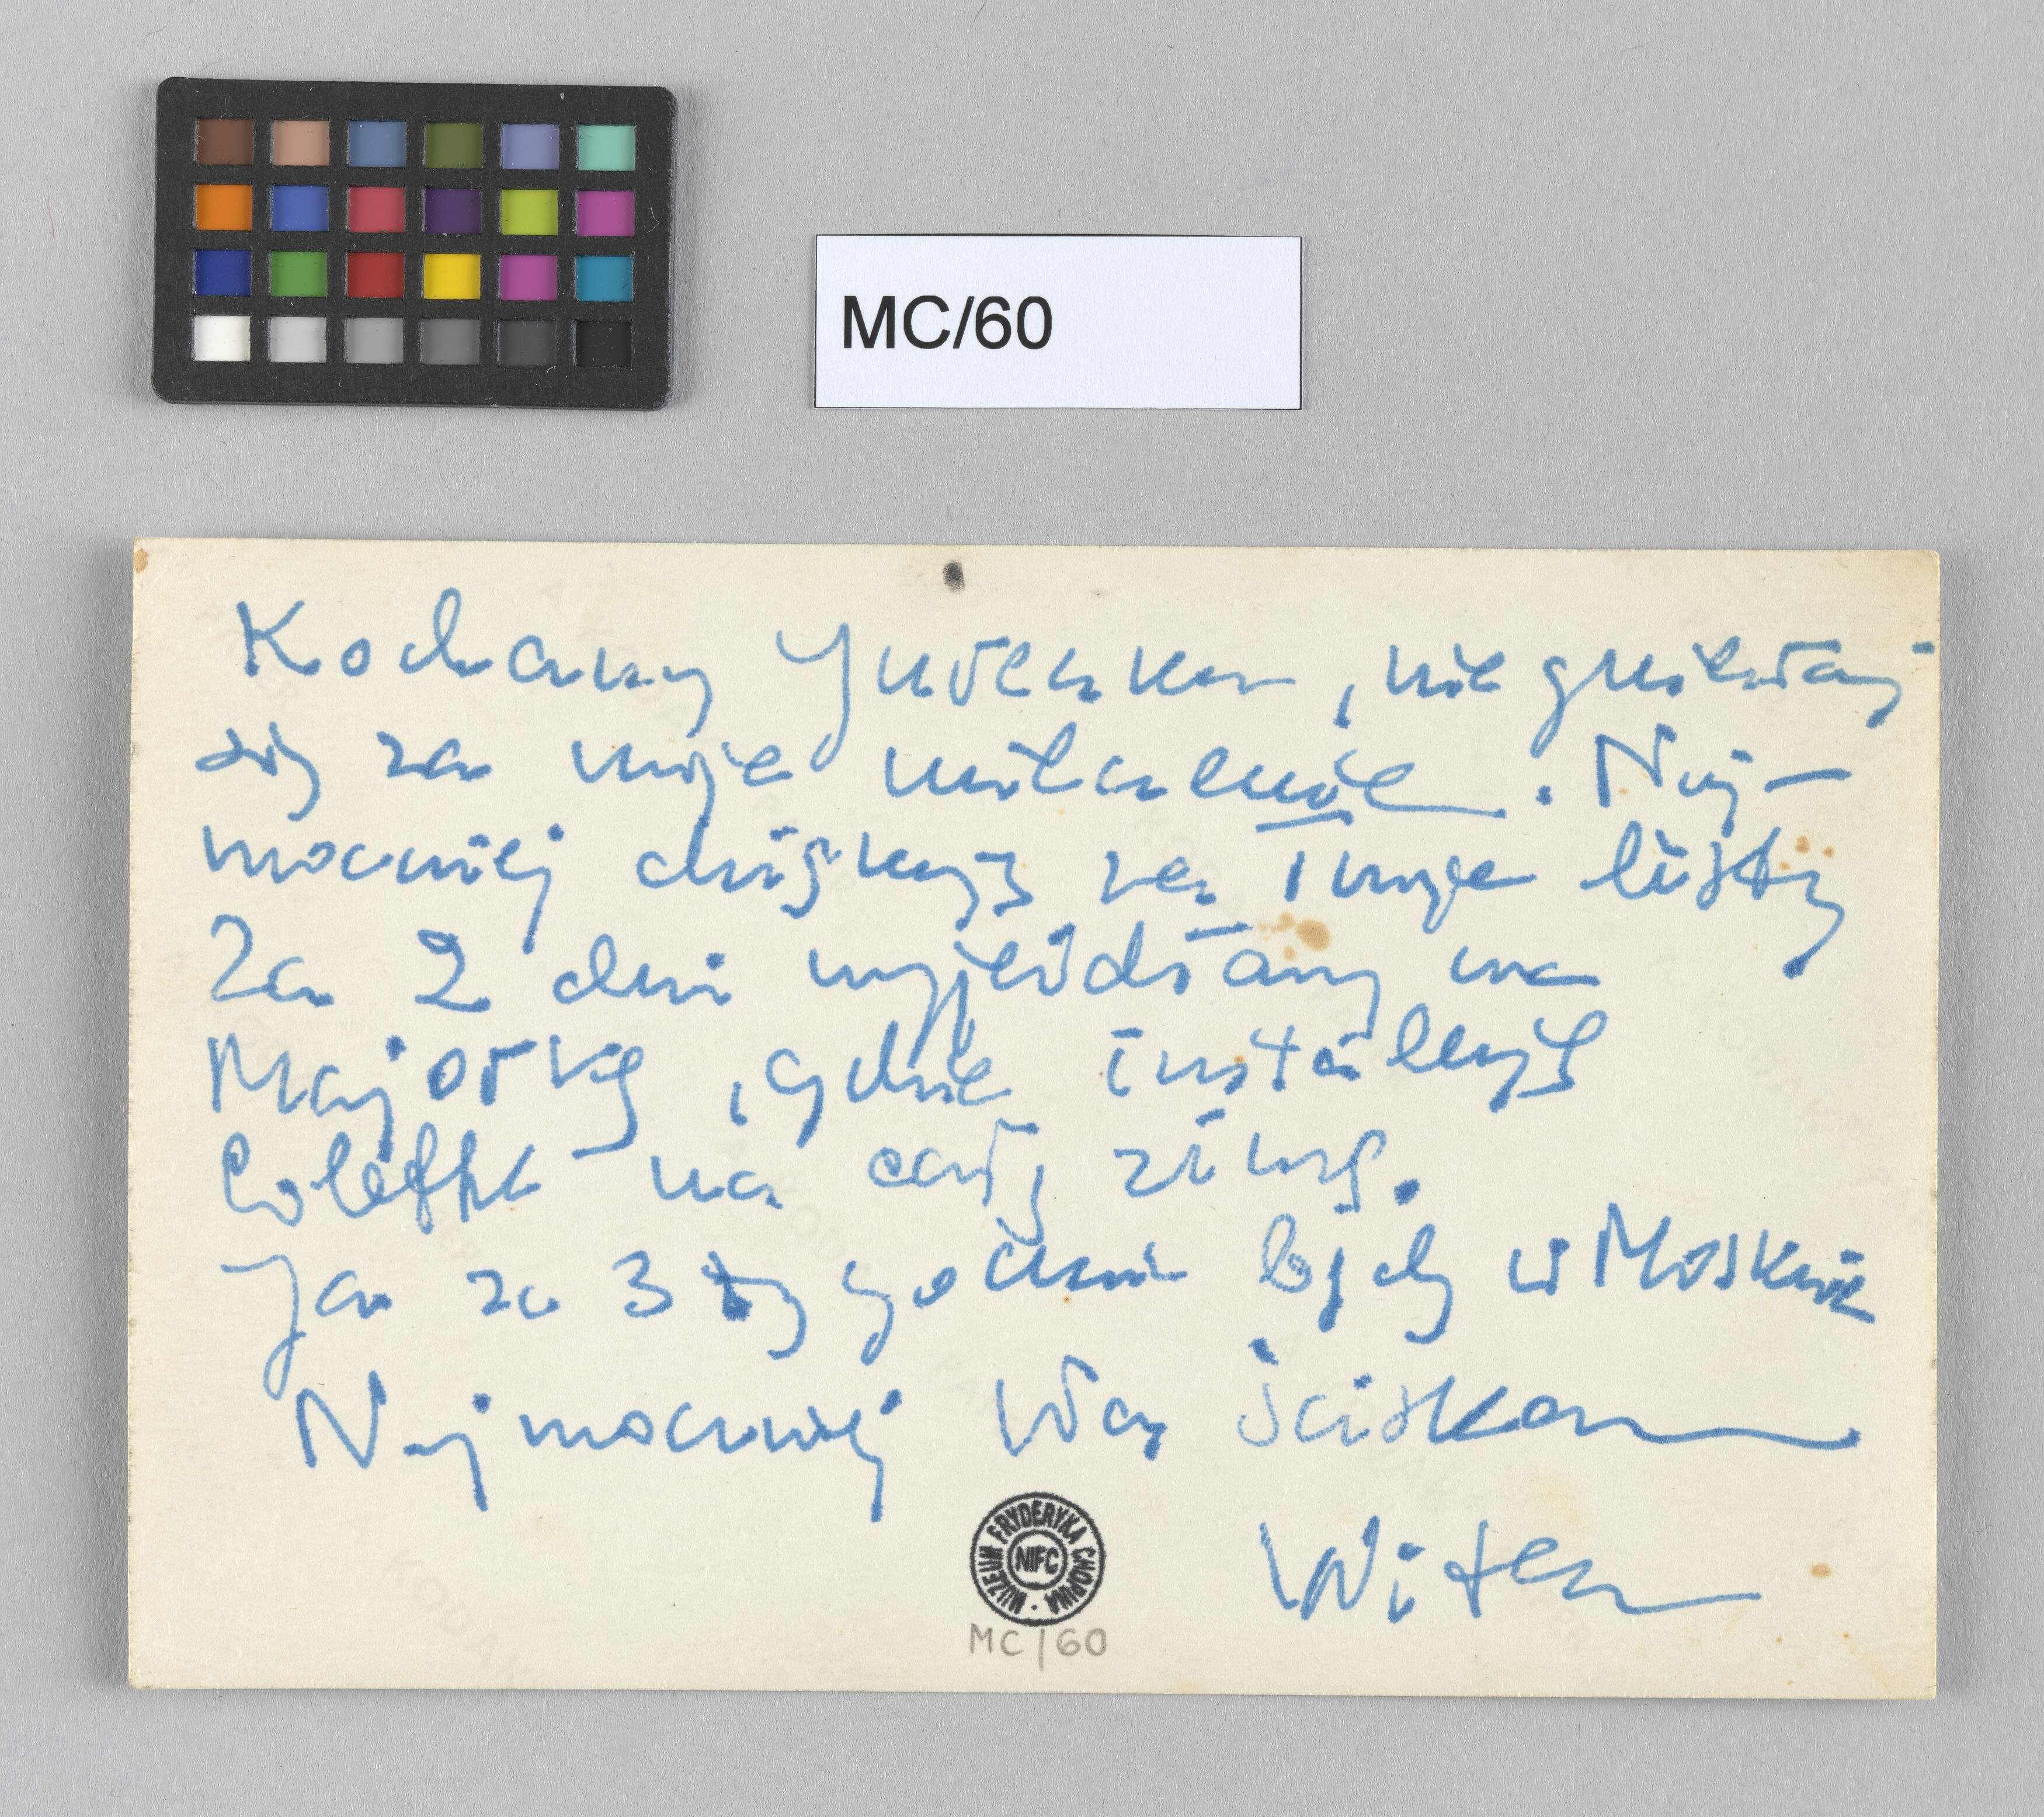 MC/60
Kochany Juleńku, nie gniewaj
się za moje milczenie. Naj-
mocniej dziękuję za Twoje listy
Za 2 dni wyjeżdżamy na
Majorkę, gdzie instaluję
Colette na całą zimę.
Ja za 3 tygodnie będę w Moskwie
Najmocniej Was ściskam
Witen
MUZEUM FRYDERYKA CHOPINA
NIFC
MC/60